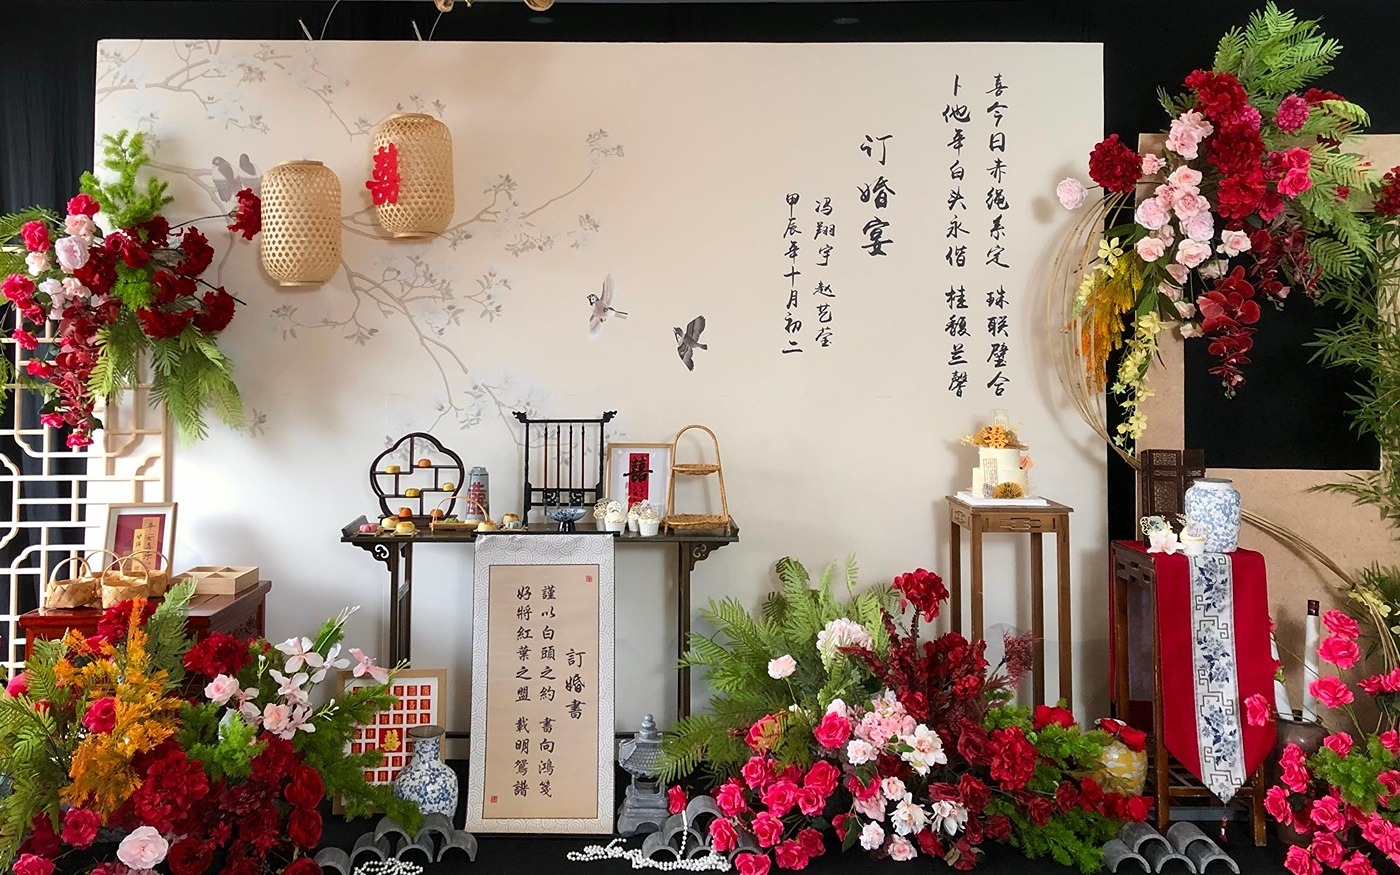 喜今日赤绳系定 珠联璧合
卜他年白头永偕 桂馥兰馨
订婚宴
冯翔宇 赵艺莹
甲辰年十月初二
囍
囍
囍
訂婚書
謹以白頭之約 書向鴻箋
好將紅葉之盟 載明鴛譜
囍